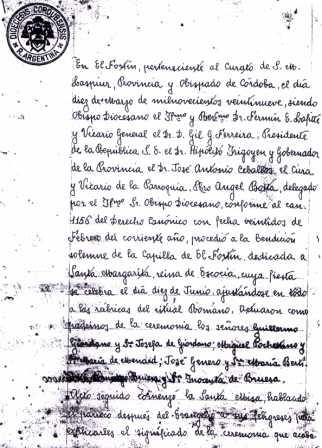 DIOECESIS CORDUBENSIS
R. ARGENTINA
En El Fortín, perteneciente al Curato de S. M.
Laspiur, Provincia y Obispado de Córdoba, el día
diez de Marzo de milnovecientos veintinueve, siendo
Obispo Diocesano el Iltmo y Rvdmo Dr. Fermín E. Lafitte
y Vicario General el Dr. D. Gil G. Ferreira, Presidente
de la República S. E. el Dr. Hipólito Irigoyen y Gobernador
de la Provincia el Dr. José Antonio Ceballos, el Cura
y Vicario de la Parroquia, Pbro Angel Botta, delegado
por el Iltmo Sr. Obispo Diocesano, conforme al can.
1156 del Derecho Canónico con fecha veintidos de
Febrero del corriente año, procedió a la bendición
solemne de la Capilla de El Fortín, dedicada a
Santa Margarita, reina de Escocia, cuya fiesta
se celebra el día diez de Junio, ajustándose en todo
a las rúbricas del ritual Romano. Actuaron como
padrinos de la ceremonia los señores Guillermo
Giordano y Sra Josefa de Giordano; Miguel
María de; José Genero y Sra María
Bruesa y Sra Inocenta de Bruesa.
Acto seguido comenzó la Santa Misa, hablando
el párroco después del evangelio a sus feligreses para
explicarles el significado de la ceremonia que acab